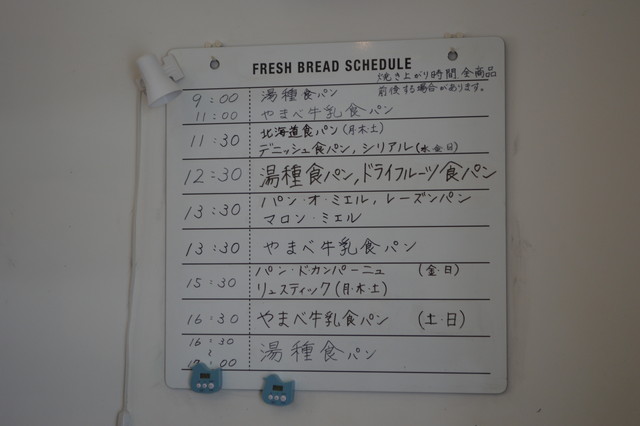 FRESH BREAD SCHEDULE
焼き上がり時間 全商品
前後する場合があります。
9:00 湯種食パン
11:00 やまべ牛乳食パン
11:30 北海道食パン(月・木・土)
デニッシュ食パン, シリアル(水・金・日)
12:30 湯種食パン,ドライフルーツ食パン
13:30 パン・オ・ミエル, レーズンパン
マロン・ミエル
13:30 やまべ牛乳食パン
15:30 パン・ドカンパーニュ (金・日)
リュスティック(月・木・土)
16:30 やまべ牛乳食パン (土・日)
16:30
~ 湯種食パン
17:00